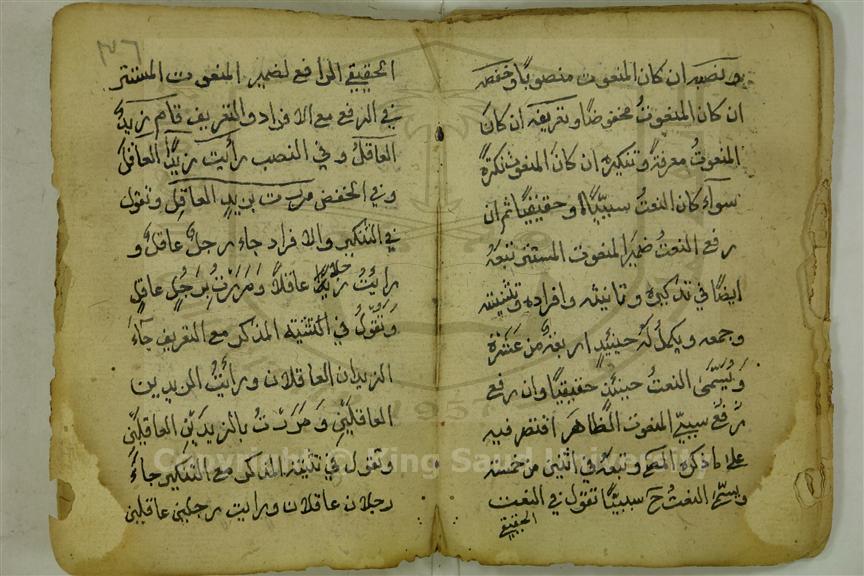 ونصبه ان كان المنعوت منصوبا وخفضه
ان كان المنعوت مخفوضا وتعريفه ان كان
المنعوت معرفة وتنكيره ان كان المنعوت نكرة
سوآء كان النعت سببيا او حقيقيا ثم ان
رفع النعت ضمير المنعوت المستتر تبعه
ايضا في تذكيره وتانيثه وافراده وتثنيته
وجمعه ويكمل له حينئذ اربعة من عشرة
ويسمى النعت حينئذ حقيقيا وان رفع
سببي المنعوت الظاهر اقتصر فيه
على ما ذكره المص وتبعه في اثنين من خمسة
ويسمى النعت ح سببيا تقول في النعت
الحقيقي
٣٦
الحقيقي الرافع لضمير المنعوت المستتر
في الرفع مع الافراد والتعريف قام زيد
العاقل وفي النصب رأيت زيدا العاقل
وفي الخفض مررت بزيد العاقل وتقول
في التنكير والافراد جاء رجل عاقل و
رايت رجلا عاقلا ومررت برجل عاقل
وتقول في التثنية المذكر مع التعريف جآء
الزيدان العاقلان ورايت الزيدين
العاقلين ومررت بالزيدين العاقلين
وتقول في تثنية المذكر مع التنكير جاء
رجلان عاقلان ورايت رجلين عاقلين
Copyright © King Saud University
1957